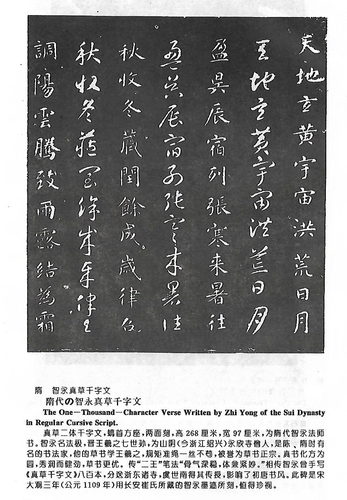 天地玄黃宇宙洪荒日月
天地玄黃宇宙洪荒日月
盈昃辰宿列張寒来暑往
盈昃辰宿列張寒来暑往
秋收冬藏閏餘成歲律吕
秋收冬藏閏餘成歲律吕
調陽雲騰致雨露結為霜
隋　智永真草千字文
隋代の智永真草千字文
The One—Thousand—Character Verse Written by Zhi Yong of the Sui Dynasty
in Regular Cursive Script.
真草二体千字文,螭首方座,两面刻,高 268 厘米,宽 97 厘米,为隋代智永法师
书。智永名法极,晋王羲之七世孙,为山阴(今浙江绍兴)永欣寺僧人,是陈、隋时有
名的书法家,他的草书学王羲之,规矩准绳一丝不苟,被誉为草书正宗。真书化方为
圆,秀润而健劲,草书更优。传“二王”笔法“骨气深稳,体兼众妙。”相传智永曾手写
《真草千字文》八百本,分送浙东诸寺。虞世南得其传授,影响了初唐书风。此碑是宋
大观三年(公元 1109 年)用长安崔氏所藏的智永墨迹所刻,值得参研。